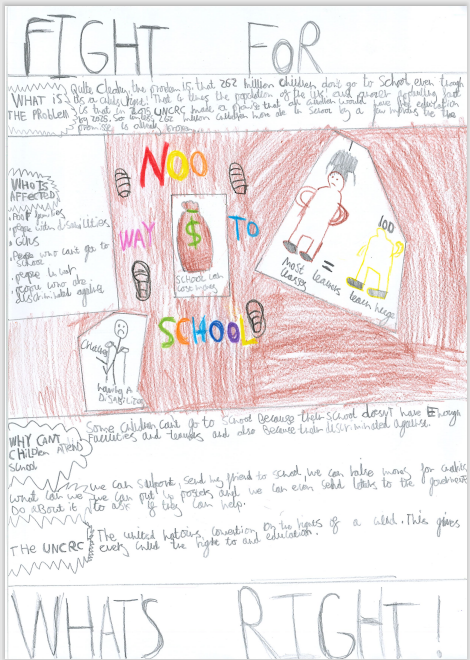 FIGHT FOR
WHAT IS
THE PROBLEM
Quite Clearly the problem is that 262 million children don't go to School even though
its a childs right! That is 4 times the population of the UK!
is that in 2015 UNCRC made a promise that all children would have full education
by 2025. So unless 262 million children more are in School by a few months the
promise is already broken
WHO IS
AFFECTED?
. Poor families
. people with disabilities
. GIRLS
. People who can't go to
School
. people in war
. people who are
discriminated against
NOO
WAY TO
SCHOOL
$
SCHOOL can
cost money
100
=
most learners
classes
teach huge
Children
having A
DISABILITIES
WHY CAN'T
CHILDREN ATTEND
School
Some children can't go to School Because their School doesn't have Enough
Facilities and teachers and also Because their discriminated against.
What can we
DO about it
we can support, send my friend to school, we can raise money for charities
we can put up posters and we can even send letters to the government
to ask if they can help.
THE UNCRC
The united nations convention on the rights of a child. This gives
every child the right to and education.
WHAT'S RIGHT!